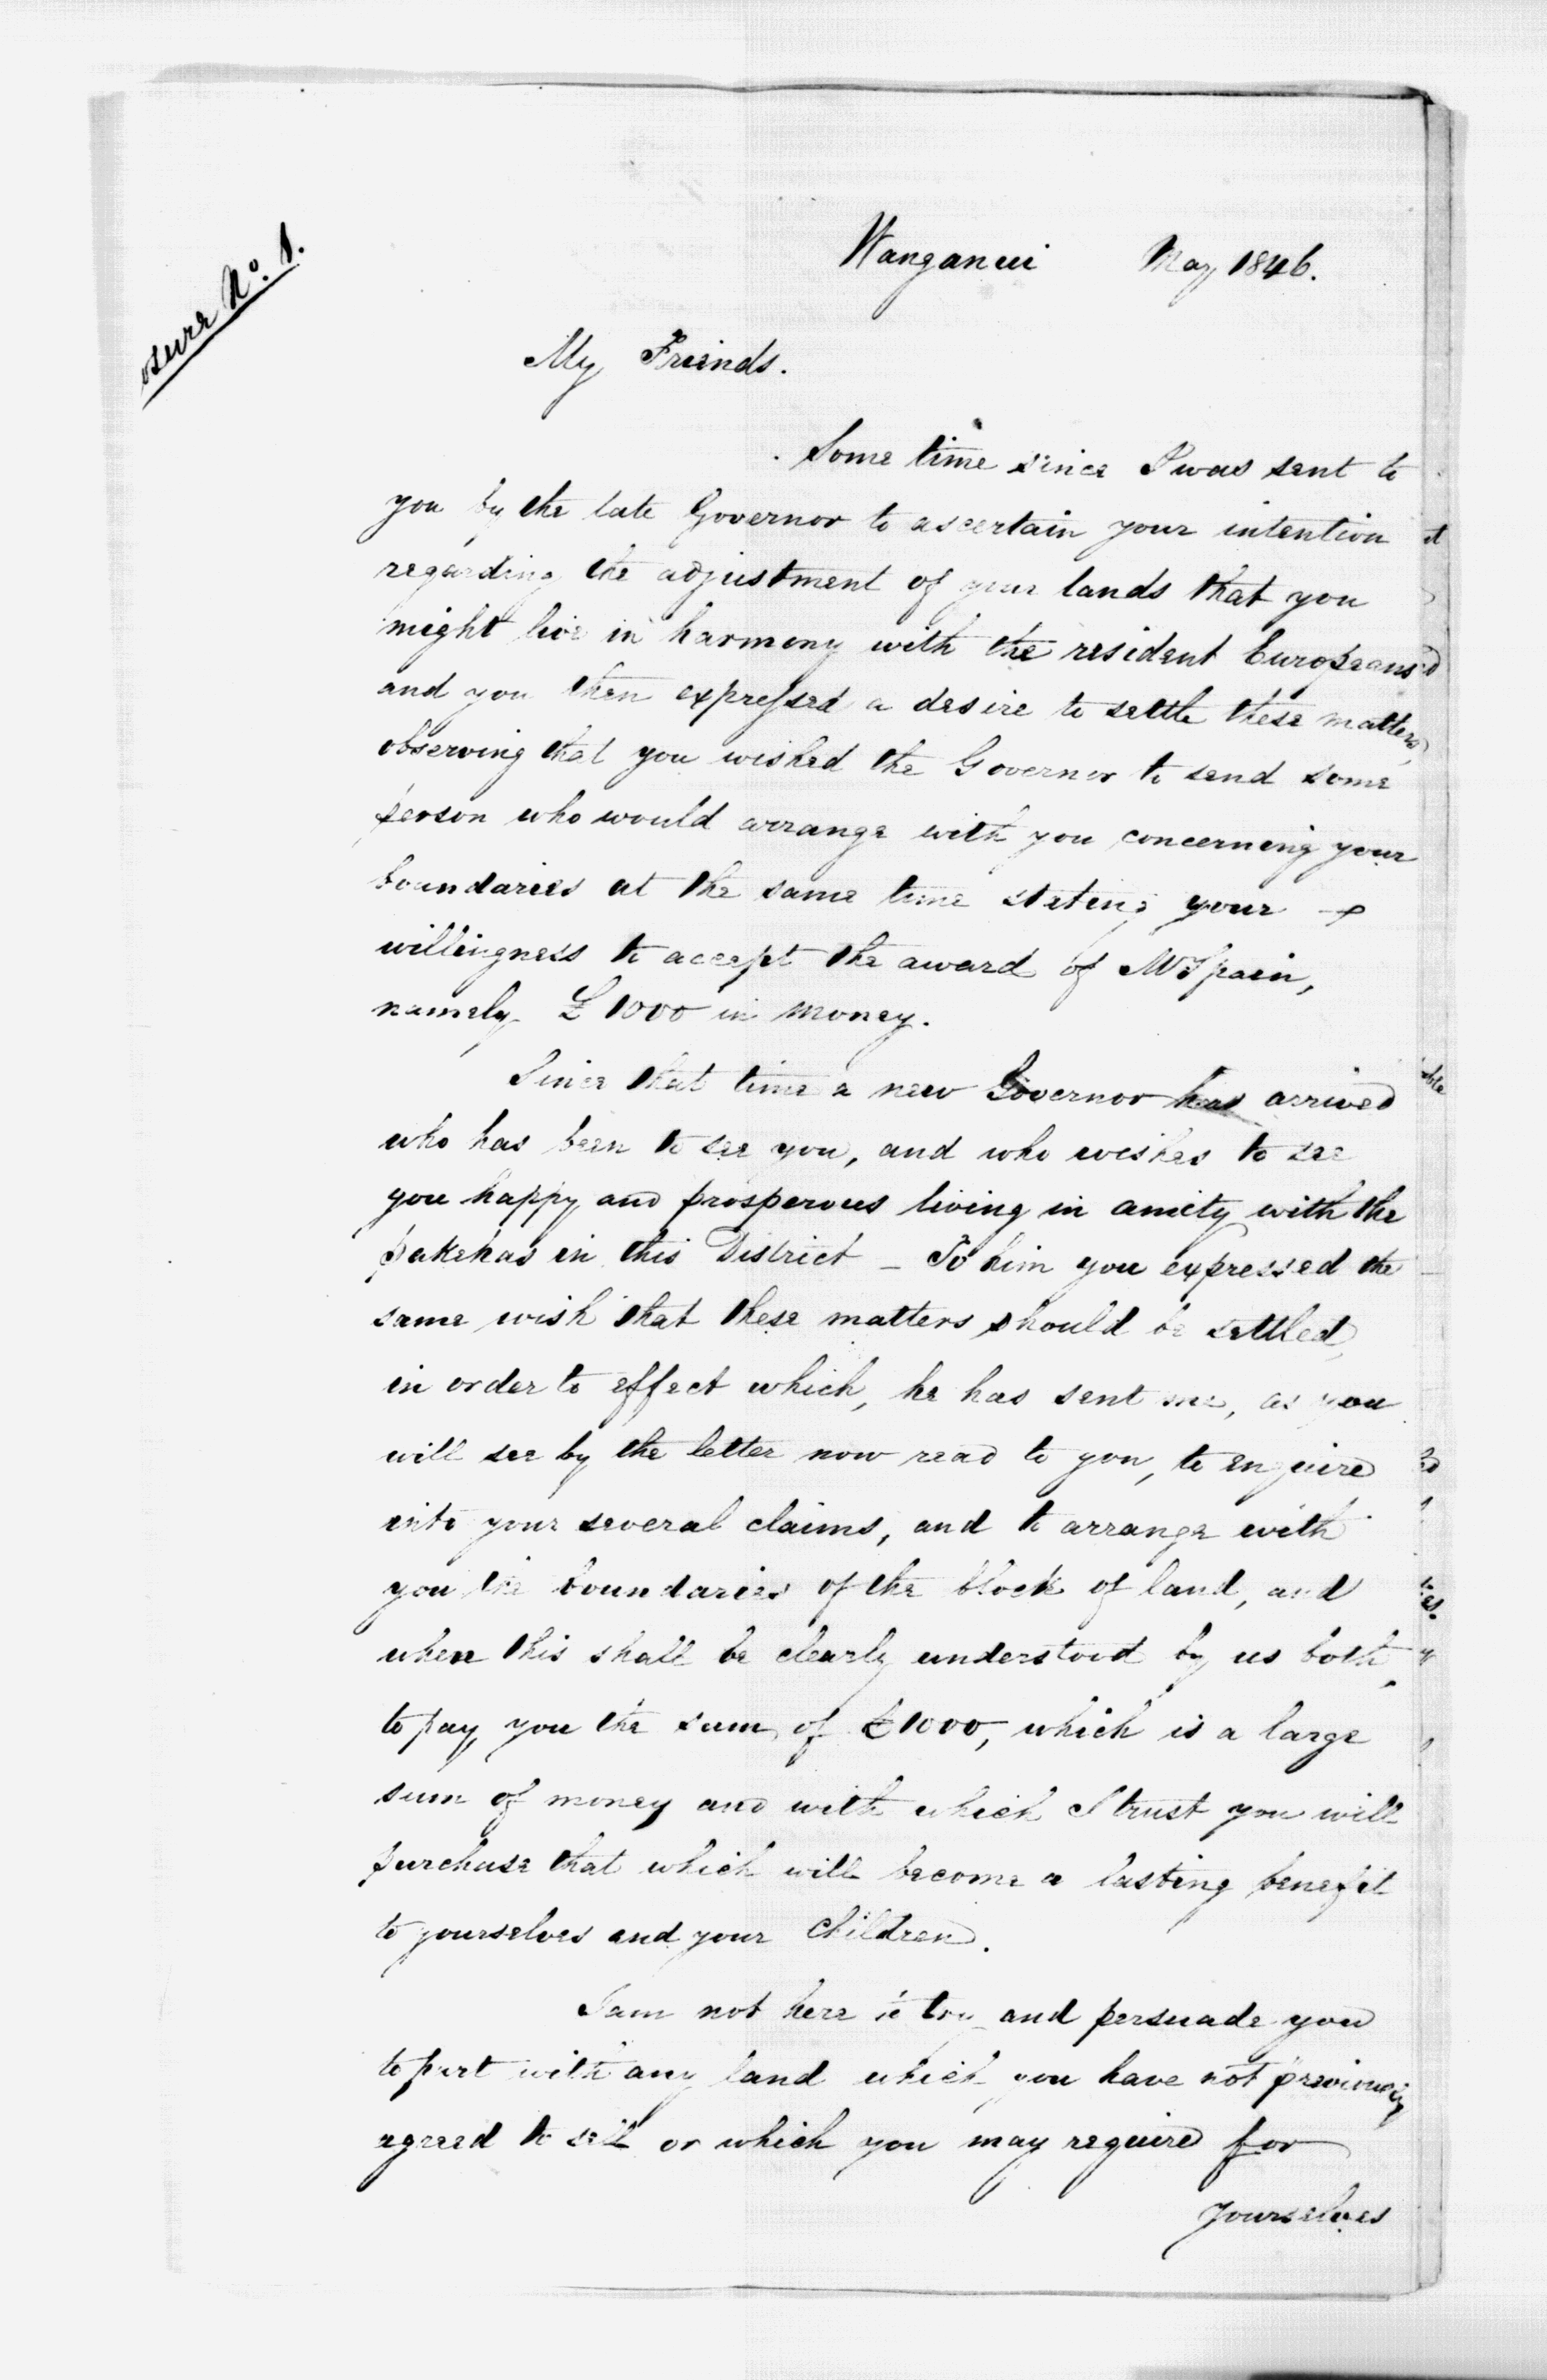 osure No. 1.
Wanganui May 1846.
My Friends.
Some time since I was sent to
you by the late Governor to ascertain your intention
regarding the adjustment of your lands that you
might live in harmony with the resident Europeans
and you then expressed a desire to settle these matters,
observing that you wished the Governor to send some
person who would arrange with you concerning your
boundaries at the same time stating your
willingness to accept the award of Mr Spain,
namely £1000 in money.
Since that time a new Governor has arrived
who has been to see you, and who wishes to see
you happy and prosperous living in amity with the
pakehas in this District - To him you expressed the
same wish that these matters should be settled,
in order to effect which, he has sent me, as you
will see by the letter now read to you, to enquire
into your several claims, and to arrange with
you the boundaries of the block of land, and
when this shall be clearly understood by us both,
to pay you the sum of £1000, which is a large
sum of money and with which I trust you will
purchase that which will become a lasting benefit
to yourselves and your Children.
I am not here to try and persuade you
to part with any land which you have not previously
agreed to sell or which you may require for
yourselves